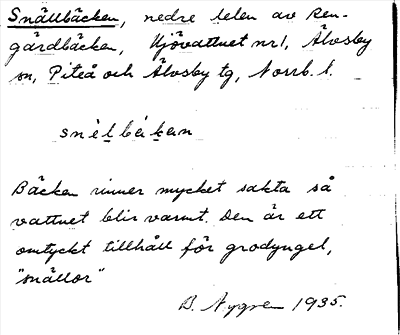 Snällbäcken, nedre delen av Ren-
gärdbäcken, Hjövattnet nr1, Älvsby
sn, Piteå och Älvsby tg, Norrb. l.
snèlbékan
Bäcken rinner mycket sakta så
vattnet blir varmt. Den är ett
omtyckt tillhåll för grodyngel,
"snällor"
B. Nygren 1935.